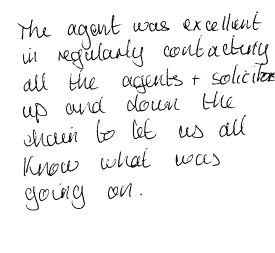 The agent was excellent
in regularly contacting
all the agents + solicitors
up and down the
chain to let us all
know what was
going on.